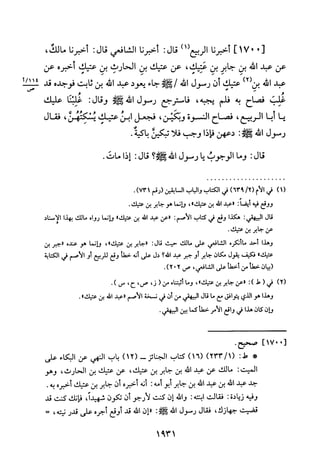 [١٧٠٠] أخبرنا الربيع(١) قال: أخبرنا الشافعي قال: أخبرنا مالكٌ،
عن عبد الله بنِ جابرِ بنِ عَتِيكٍ، عن عتيكِ بنِ الحارثِ بنِ عتيكٍ أخبره عن
عبد الله بنِ(٢) عتيكٍ أن رسول الله ﷺ جاء يعود عبد الله بن ثابت فوجده قد
١١٥/أ
ص
غُلِبَ فصاح به فلم يجبه، فاسترجع رسول الله ﷺ وقال: غُلِبْنَا عليك
يا أبا الربيع، فصاح النسوة وبَكَيْن، فجعل ابنُ عتيكٍ يُسَكِّتُهُنَّ، فقال
رسول الله ﷺ: دعهن فإذا وجب فلا تبكينَّ باكيةٌ.
قال: وما الوجوبُ يا رسول الله ﷺ؟ قال: إذا ماتَ.
(١) في الأم (٦٣٩/٢) في الكتاب والباب السابقين (رقم ٧٣١).
ووقع فيه أيضاً: «عبد الله بن عتيك»، وإنما هو جابر بن عتيك.
قال البيهقي: هكذا وقع في كتاب الأصم: «عن عبد الله بن عتيك» وإنما رواه مالك بهذا الإسناد
عن جابر بن عتيك.
وهذا أحد ما أنكره الشافعي على مالك حيث قال: «جابر بن عتيك»، وإنما هو عنده «جبر بن
عتيك» فكيف يقول مكان جابر أو جبر عبد الله؟ دل على أنه خطأ وقع للربيع أو الأصم في الكتابة
(بيان خطأ من أخطأ على الشافعي، ص ٢٠٢).
(٢) في (ط): «عن جابر بن عتيك»، وما أثبتناه من (ز، ص، ح، س).
وهذا هو الذي يتوافق مع ما قال البيهقي من أن في نسخة الأصم «عبد الله بن عتيك».
وإن كان هذا في واقع الأمر خطأ كما بين البيهقي.
[١٧٠٠] صحيح.
* ط: (٢٣٣/١) (١٦) كتاب الجنائز ــ (١٢) باب النهي عن البكاء على
الميت: مالك عن عبد الله بن جابر بن عتيك، عن عتيك بن الحارث، وهو
جد عبد الله بن عبد الله بن جابر أبو أمه: أنه أخبره أن جابر بن عتيك أخبره به.
وفيه زيادة: فقالت ابنته: والله إن كنت لأرجو أن تكون شهيداً، فإنك كنت قد
قضيت جهازك، فقال رسول الله ﷺ: «إن الله قد أوقع أجره على قدر نيته، =
١٩٣١